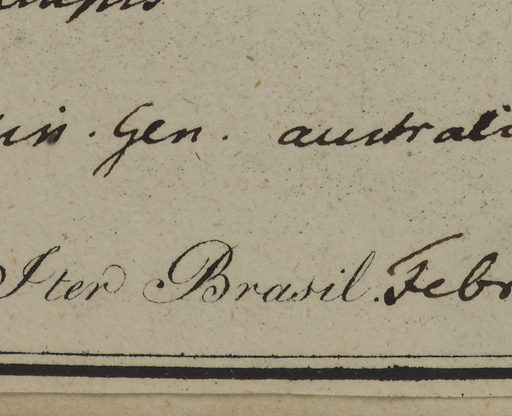 in. Gen. australi
Iter Brasil. Febr